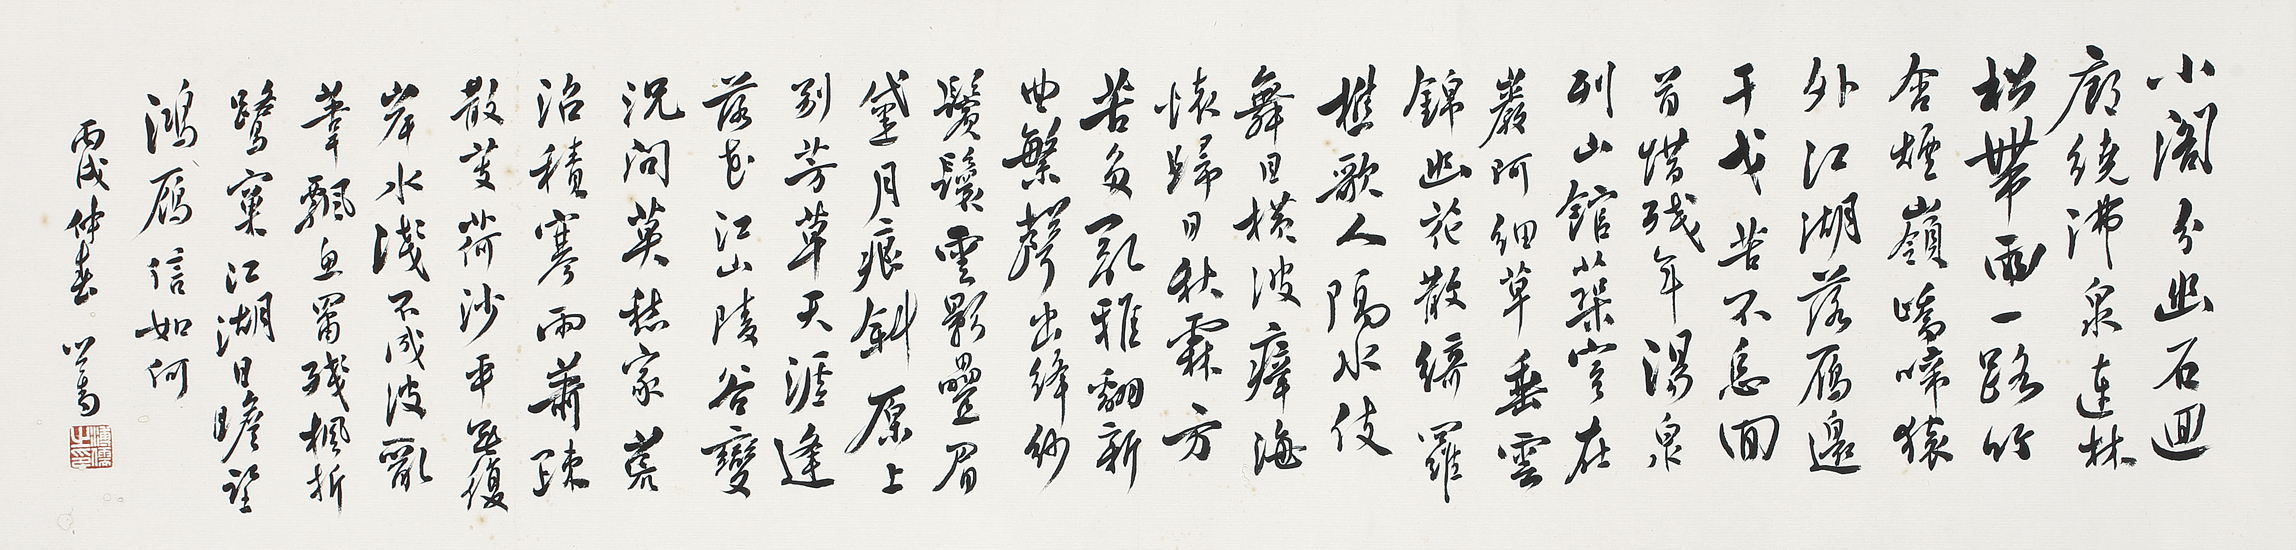 小阁分幽石迴
廊繞沸泉連林
松帶雨一路竹
含煙嶺嶠啼猿
外江湖落雁邊
干戈苦不息回
首惜殘年湯泉
列山館築室在
巖阿細草垂雲
錦幽花散綺羅
樵歌人隔水伎
舞日橫波瘴海
懷歸日秋霖方
苦多一乳雅翻新
曲繁聲出絳紗
鬢鬟雲影疊眉
黛月痕斜原上
别芳草天涯逢
落花江山陵谷變
況問莫愁家荒
沼積寒雨蕭疎
散芰荷沙平無復
岸水淺不成波亂
葦飄魚罶殘楓折
鷺窠江湖日瞻望
鴻雁信如何
丙戌仲春 心畬
溥儒之印